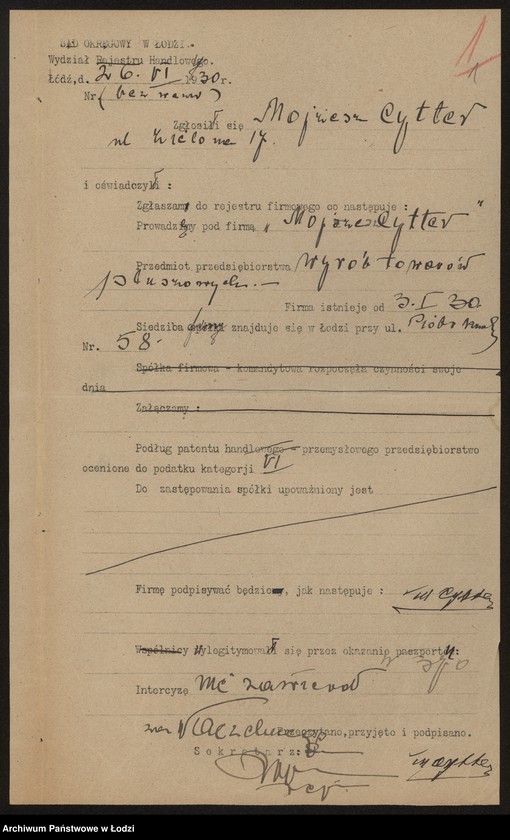 SĄD OKRĘGOWY W ŁODZI.
Wydział Rejestru Handlowego.
Łódź,d. 26. VI 1930r.
Nr (bez wezw)
Zgłosił się Mojżesz Cytter
ul Zielona 17.
i oświadczył :
Zgłaszam do rejestru firmowego co następuje :
Prowadzę pod firmą „Mojżesz Cytter"
Przedmiot przedsiębiorstwa wyrób towarów
pluszowych.-
Firma istnieje od 3.I 30
Siedziba firmy znajduje się w Łodzi przy ul. Piotrkowskiej
Nr. 58.
Spółka firmowa - komandytowa rozpoczęła czynności swoje
dnia
Załączamy :
Podług patentu handlowego - przemysłowego przedsiębiorstwo
ocenione do podatku kategorji VI
Do zastępowania spółki upoważniony jest
Firmę podpisywać będzie, jak następuje : M Cytter
Wspólnicy wylegitymował się przez okazanie paszportu:
Intercyzę nie zawierał
przeczytano,przyjęto i podpisano.
Sekretarz:
M Cytter
1
1
Archiwum Państwowe w Łodzi